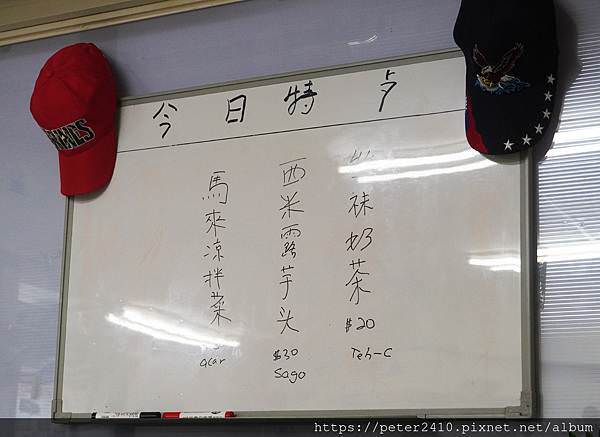 今日特夕
袜奶茶
$20
Teh-C
西米露芋头
$30
Sago
馬來凉拌菜
acar
https://peter2410.pixnet.net/album